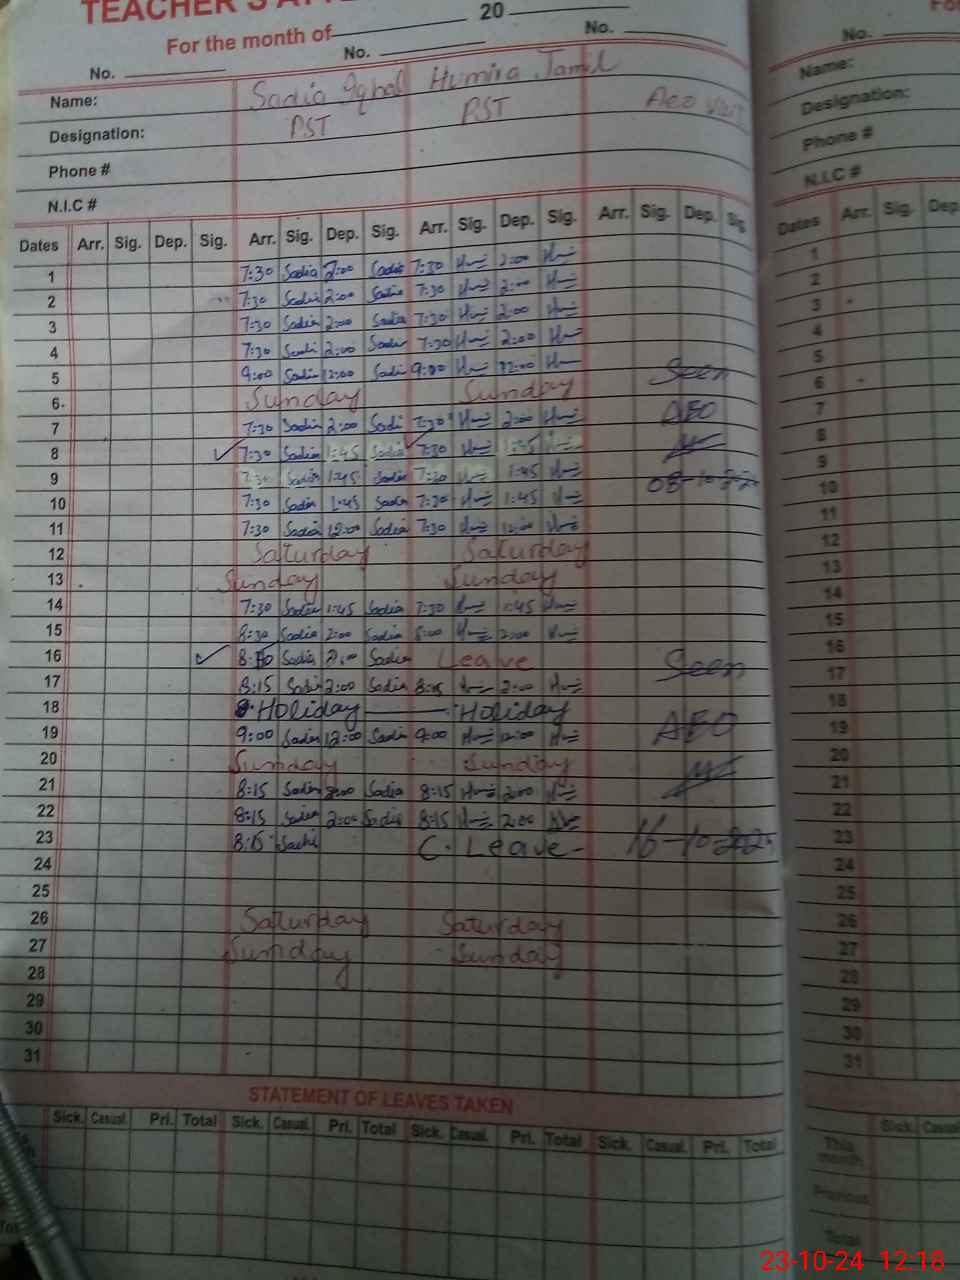 TEACHER'S
For the month of 20
No. No. No. No.
Name: Sadia Iqbal Humira Jamil Name:
Designation: PST PST Aeo visit Designation:
Phone # Phone #
N.I.C # N.I.C #
Dates Arr. Sig. Dep. Sig. Arr. Sig. Dep. Sig. Arr. Sig. Dep. Sig. Arr. Sig. Dep. Sig. Dates Arr. Sig. Dep.
1 7:30 Sadia 2:00 Sadia 7:30 2:00 1
2 7:30 Sadia 2:00 Sadia 7:30 2:00 2
3 7:30 Sadia 2:00 Sadia 7:30 2:00 3
4 7:30 Sadi 2:00 Sadia 7:30 2:00 4
5 9:00 Sadia 12:00 Sadi 9:00 12:00 Seen 5
6 Sunday Sunday 6
7 7:30 Sadia 2:00 Sadi 7:30 2:00 AEO 7
8 7:30 Sadia 1:45 Sadia 7:30 1:45 8
9 7:30 Sadia 1:45 Sadia 7:30 1:45 9
10 7:30 Sadia 1:45 Sadia 7:30 1:45 10
11 7:30 Sadia 12:00 Sadia 7:30 12:00 11
12 Saturday Saturday 12
13 Sunday Sunday 13
14 7:30 Sadia 1:45 Sadia 7:30 1:45 14
15 8:30 Sadia 2:00 Sadia 2:00 15
16 Sadia 2:00 Sadia Leave Seen 16
17 8:15 Sadi 2:00 Sadia 8:15 2:00 17
18 Holiday Holiday 18
19 9:00 Sadia 12:00 Sadia 9:00 12:00 AEO 19
20 Sunday Sunday 20
21 8:15 Sadia 2:00 Sadia 8:15 2:00 21
22 8:15 Sadia 2:00 Sadia 8:15 2:00 22
23 8:15 C. Leave 23
24 24
25 25
26 Saturday Saturday 26
27 Sunday Sunday 27
28 28
29 29
30 30
31 31
STATEMENT OF LEAVES TAKEN
Sick. Casual. Pri. Total Sick. Casual. Pri. Total Sick. Casual. Pri. Total Sick. Casual. Pri. Total Sick.
This month
Previous
Total
23-10-24 12:18